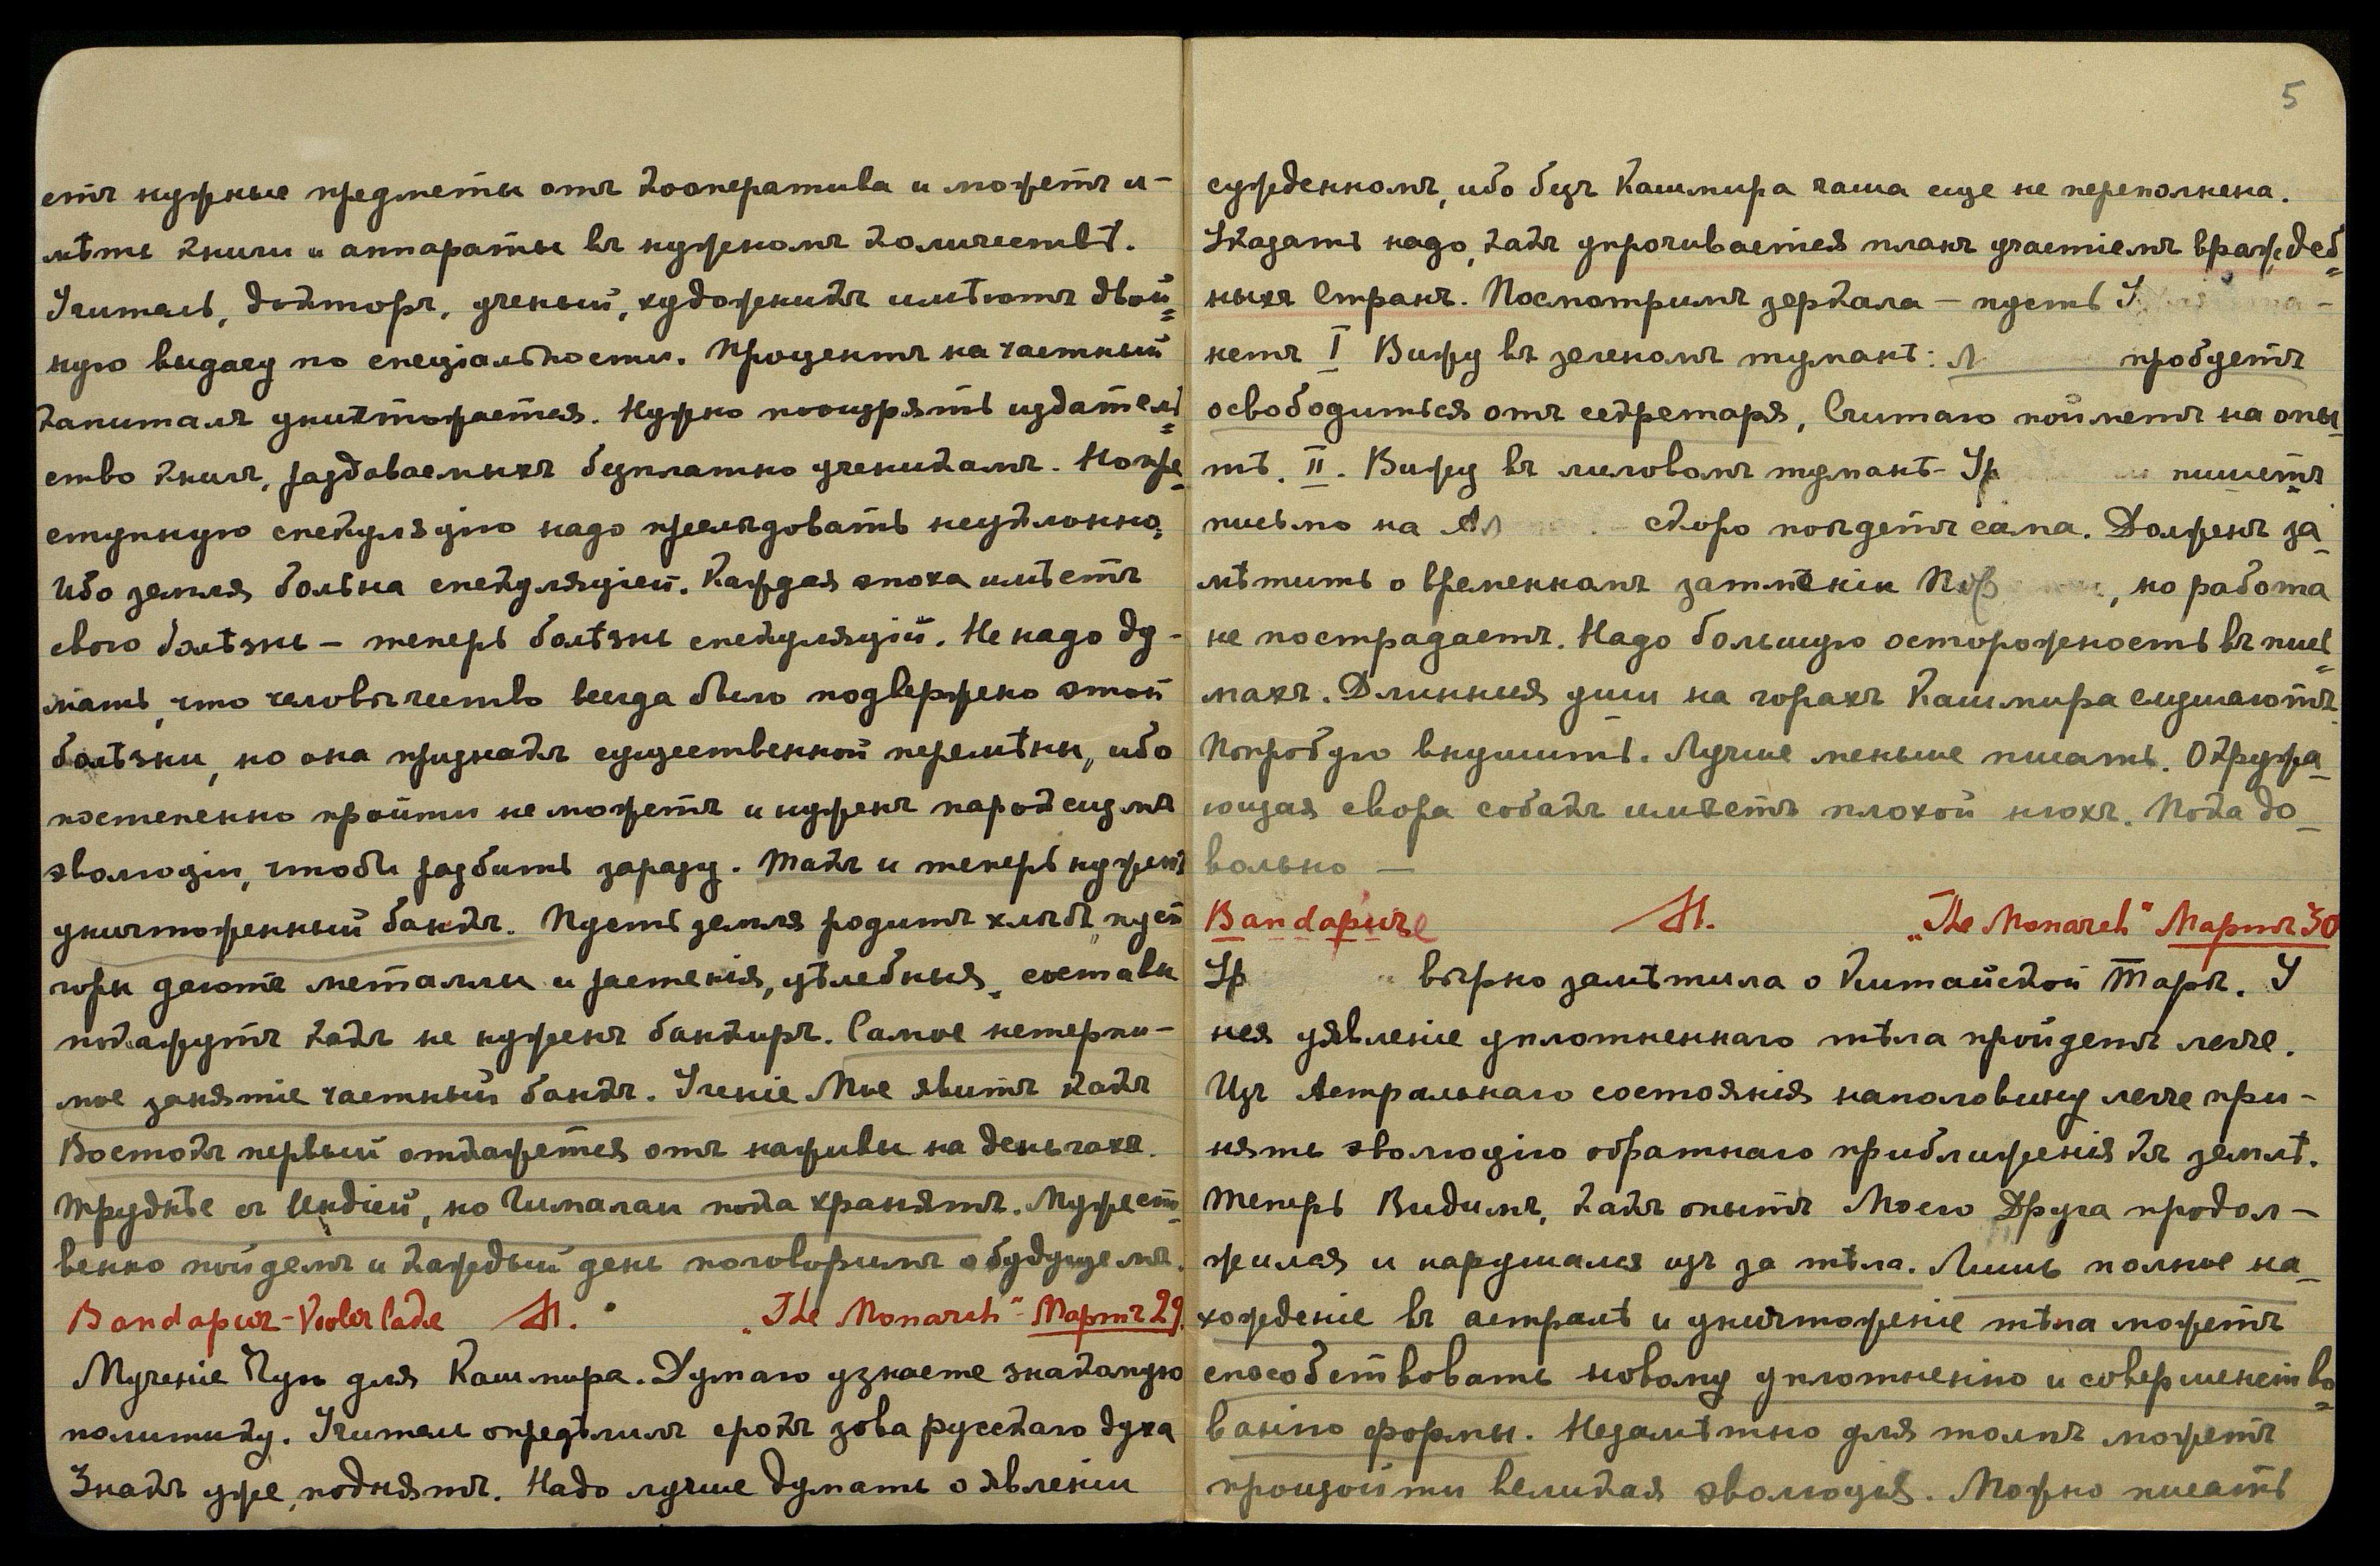 етъ нужные предметы отъ кооператива и можетъ и-
мѣть книги и аппараты въ нужномъ количествѣ.
Учитель, докторъ, ученый, художникъ имѣютъ двой=
ную выдачу по спеціальности. Процентъ на частный
капиталъ уничтожается. Нужно поощрять издатель=
ство книгъ, раздаваемыхъ безплатно ученикамъ.
ступную спекуляцію надо преслѣдовать неуклонно,
ибо земля больна спекуляціей. Каждая эпоха имѣетъ
свою болѣзнь – теперь болѣзнь спекуляцій. Не надо ду-
мать, что человѣчество всегда было подвержено этой
болѣзни, но она признакъ существенной перемѣны, ибо
постепенно пройти не можетъ и нуженъ пароксизмъ
эволюціи, чтобы разбить заразу. Такъ и теперь нуженъ
уничтоженный банкъ. Пусть земля родитъ хлѣбъ, пусть
горы даютъ металлы и растенія, цѣлебныя составы
покажутъ какъ не нуженъ банкиръ. Самое нетерпи-
мое занятіе частный банкъ. Ученіе Мое явитъ какъ
Востокъ первый откажется отъ наживы на деньгахъ.
Труднѣе съ Индіей, но Гималаи пока хранятъ. Мужест=
венно пойдемъ и каждый день поговоримъ о будущемъ.
Bandapur- М. "The Monarch" - Мартъ 29.
Мученіе Чуя для Кашмира. Думаю узнаете знакомую
политику. Учитель опредѣлилъ срокъ зова русскаго духа
Знакъ уже поднятъ. Надо лучше думать о явленіи
5
сужденномъ, ибо безъ Кашмира чаша еще не переполнена.
Указать надо, какъ упрочивается планъ участіемъ враждеб=
ныхъ Странъ. Посмотримъ зеркала – пусть
нетъ I Вижу въ зеленомъ туманѣ: пробуетъ
освободиться отъ секретаря, Считаю пойметъ на опы-
тѣ. II. Вижу въ лиловомъ туманѣ - пишетъ
письмо на скоро поѣдетъ сама. Долженъ за-
мѣтить о временномъ затменіи , но работа
не пострадаетъ. Надо большую осторожность въ пись=
махъ. Длинныя уши на горахъ Кашмира слушаютъ.
Попробую внушить. Лучше меньше писать. Окружа-
ющая свора собакъ имѣетъ плохой нюхъ. Пока до-
вольно —
Bandapure М. "The Monarch" Мартъ 30
Ур вѣрно замѣтила о Китайской Тарѣ. У
нея уявленіе уплотненнаго тѣла пройдетъ легче.
Изъ Астральнаго состоянія наполовину легче при-
нять эволюцію обратнаго приближенія къ землѣ.
Теперь Видимъ, какъ опытъ Моего Друга продол-
жился и нарушался изъ за тѣла. Лишь полное на-
хожденіе въ астралѣ и уничтоженіе тѣла можетъ
способствовать новому уплотненію и совершенство=
ванію формы. Незамѣтно для толпъ можетъ
произойти великая эволюція. Можно писать